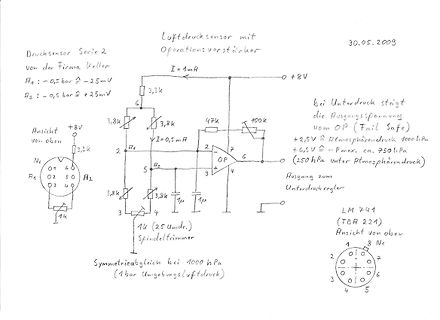 Luftdrucksensor mit
Operationsverstärker
30.05.2009
Drucksensor Serie 2
von der Firma Keller
A1 = -0,5bar ≙ -25mV
A2 = -0,5bar ≙ +25mV
I = 1mA
+8V
3,3k
6
3,8k
3,8k
I = 0,5mA
47k
100k
Ansicht
von oben
+8V
3,3k
N1
A2
A1
1k
2
A1
5
A2
2
3
7
6
4
OP
3,8k
3,8k
1µ
1µ
3
4
1k (25 Umdr.)
Spindeltrimmer
Symmetrieabgleich bei 1000 hPa
(1bar Umgebungsluftdruck)
bei Unterdruck steigt
die Ausgangsspannung
vom OP (Fail Safe)
+2,5V ≙ Atmosphärendruck 1000hPa
+6,5V ≙ Pmax. ca. 750hPa
(250hPa unter Atmosphärendruck)
Ausgang zum
Unterdruckregler
LM 741
(TBA 221)
Ansicht von oben
8 N1
1
2
3
4
5
6
7